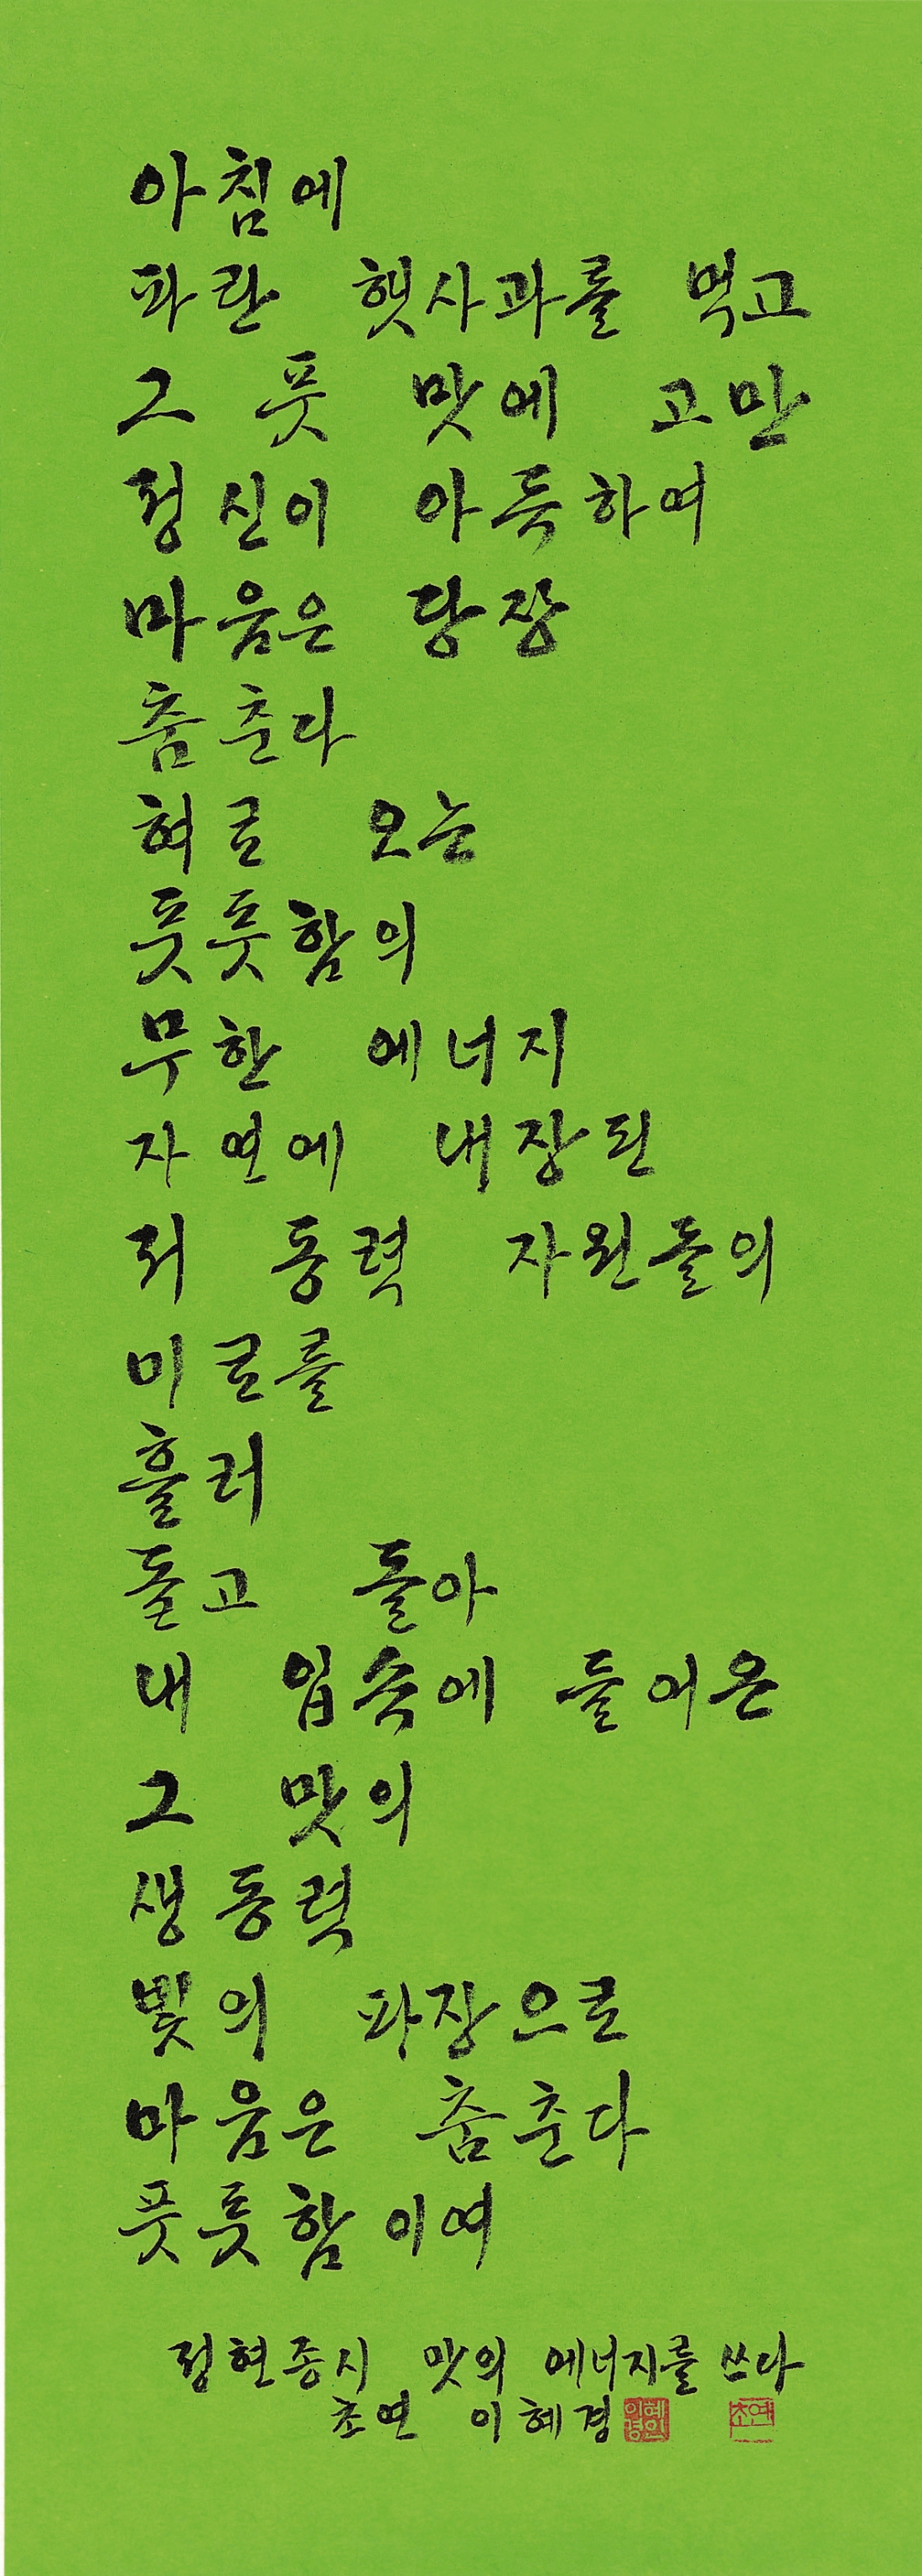 아침에
파란 햇사과를 먹고
그 풋 맛에 고만
정신이 아득하여
마음은 당장
춤춘다
혀로 오는
풋풋함의
무한 에너지
자연에 내장된
저 동력 자원들의
미로를
흘러
돌고 돌아
내 입속에 들어온
그 맛의
생동력
빛의 파장으로
마음은 춤춘다
풋풋함이여
정현종시 맛의 에너지를 쓰다
초연 이혜경
초연